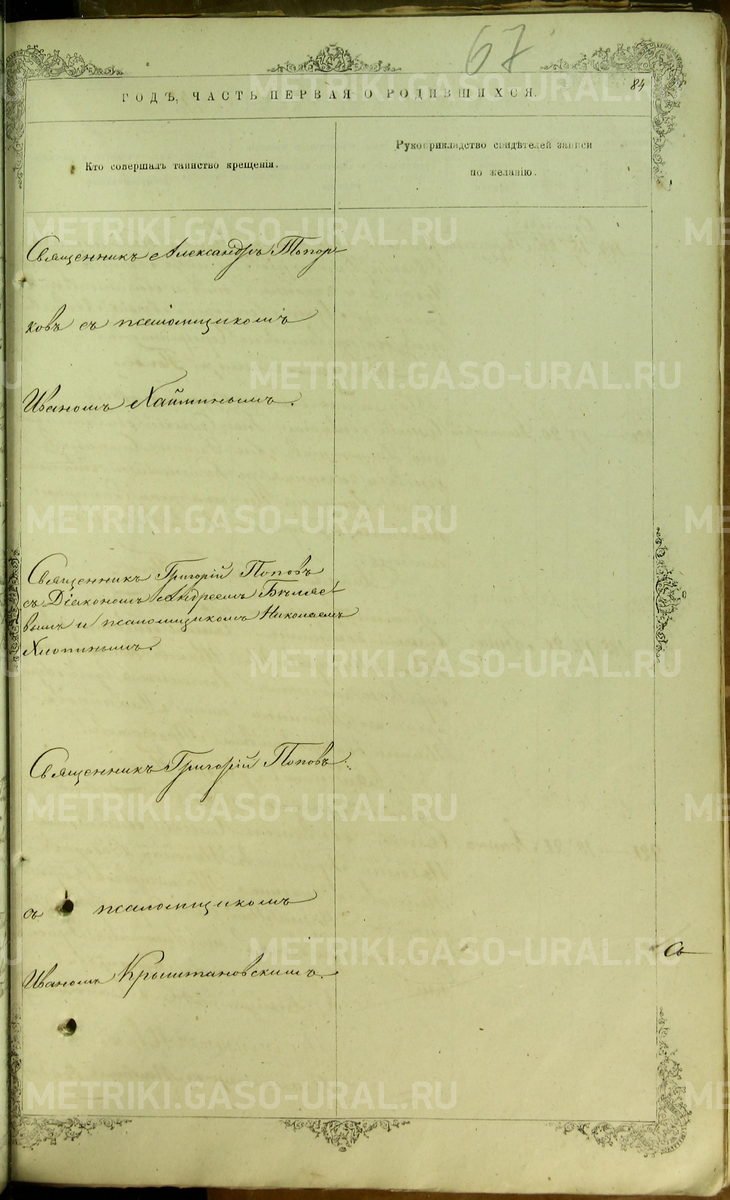 67
84
ГОДЪ, ЧАСТЬ ПЕРВАЯ О РОДИВШИХСЯ.
Кто совершалъ таинство крещенія.
Рукоприкладство свидѣтелей записи
по желанію.
Священникъ Александръ Топор
ковъ съ псаломщикомъ
Иваномъ Хайминымъ.
Священникъ Григорій Поповъ
съ Діакономъ Андреемъ Бѣляе
вымъ и псаломщикомъ Николаемъ
Хлопинымъ.
Священникъ Григорій Поповъ
съ псаломщикомъ
Иваномъ Крыштановскимъ.
METRIKI.GASO-URAL.RU